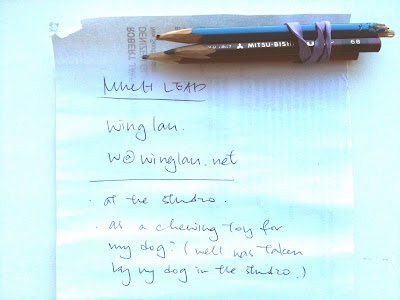 MITSU-BISHI 6B
MUCH LEAD
wing lau.
w@winglau.net
. at the studio.
. as a chewing toy for
my dog? (well was taken
by my dog in the studio.)